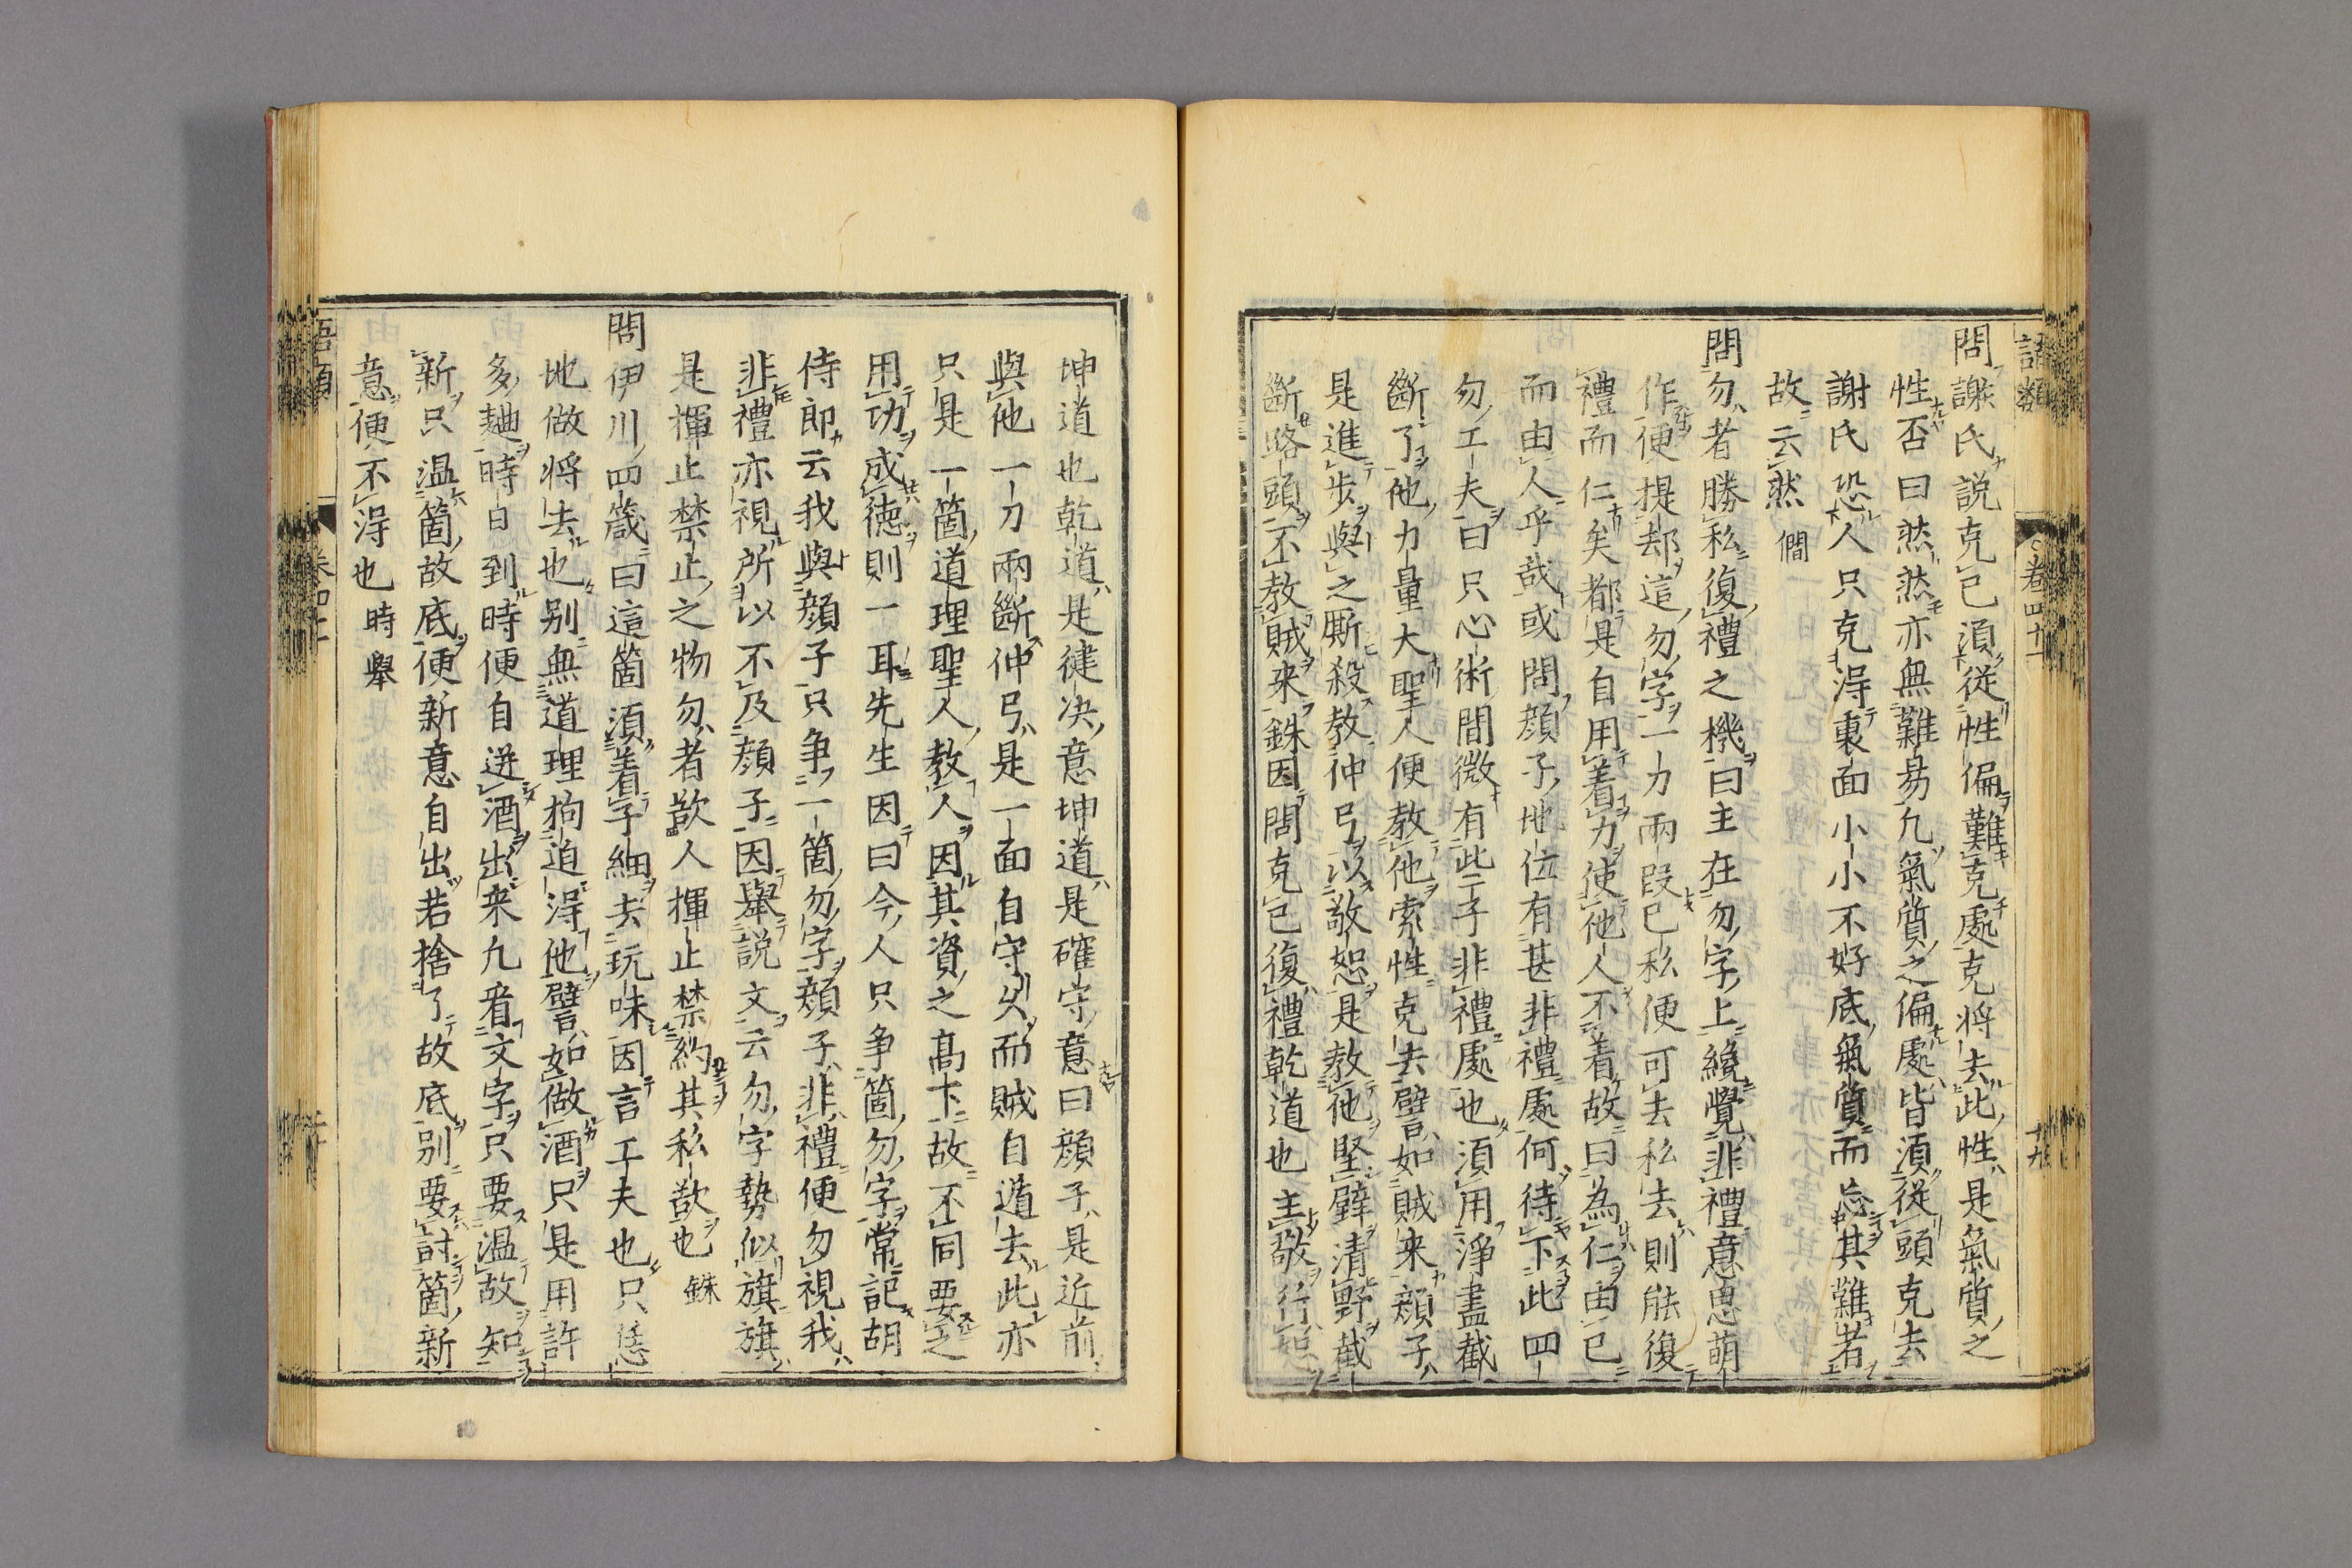 語類 卷四十一 十九
問謝氏說克己須從性偏難克處克將去此性是氣質之
性否曰然然亦無難易凡氣質之偏處皆須從頭克去
謝氏恐人只克得裏面小小不好底氣質而忘其難者
故云然 僩
問勿者勝私復禮之機曰主在勿字上纔覺非禮意思萌
作便提却這勿字一刀兩段己私便可去私去則能復
禮而仁矣都是自用着力使他人不着故曰為仁由己
而由人乎哉或問顏子地位有甚非禮處何待下此四
勿工夫曰只心術間微有此子非禮處也須用淨盡截
斷了他力量大聖人便教他索性克去譬如賊来顏子
是進步與之厮殺教仲弓以敬恕是教他堅壁清野截
斷路頭不教賊来銖因問克己復禮乾道也主敬行恕
坤道也乾道是健决意坤道是確守意曰顏子是近前
與他一刀兩斷仲弓是一面自守久而賊自遁去此亦
只是一箇道理聖人教人因其資之高下故不同要之
用功成德則一耳先生因曰今人只争箇勿字常記胡
侍郎云我與顏子只争一箇勿字顏子非禮便勿視我
非禮亦視所以不及顏子因舉說文云勿字勢似旗旗
是揮止禁止之物勿者欲人揮止禁約其私欲也 銖
問伊川四箴曰這箇須着子細去玩味因言工夫也只恁
地做将去也别無道理拘迫得他譬如做酒只是用許
多麯時日到時便自迸酒出来凡看文字只要温故知
新只温箇故底便新意自出若捨了故底别要討箇新
意便不得也 時舉
語類 卷四十一